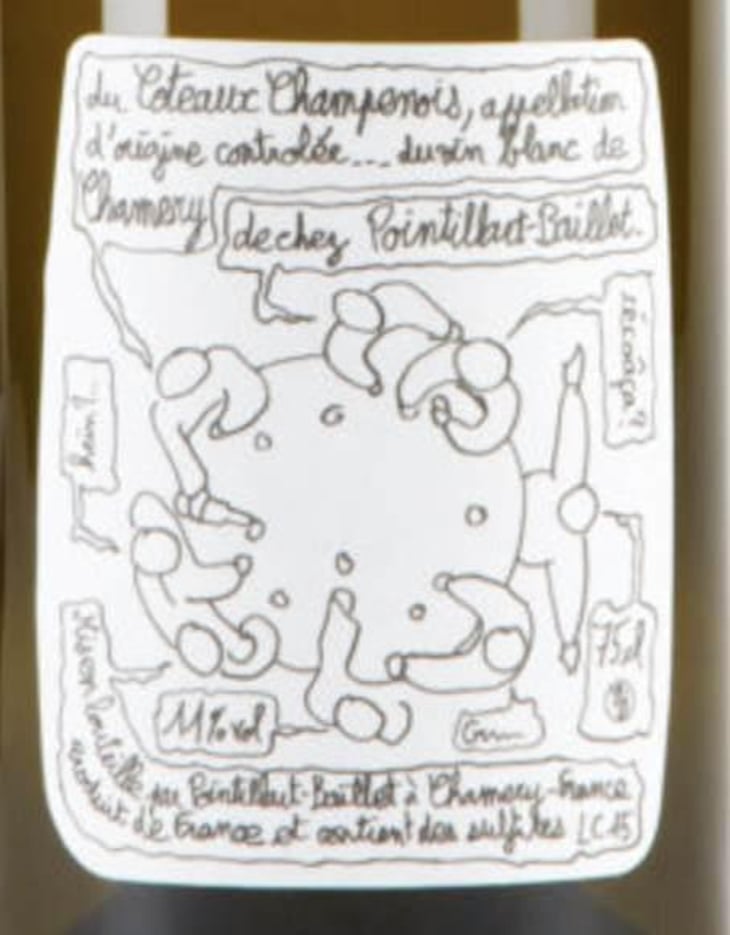 du Coteaux Champenois, appellation
d'origine controlée... du vin blanc de
Chamery
de chez Pointillart-Baillet.
hein?
75cl
11% vol
bouteille par Pointillart-Baillet à Chamery-France
produit de France et contient des sulfites LC15